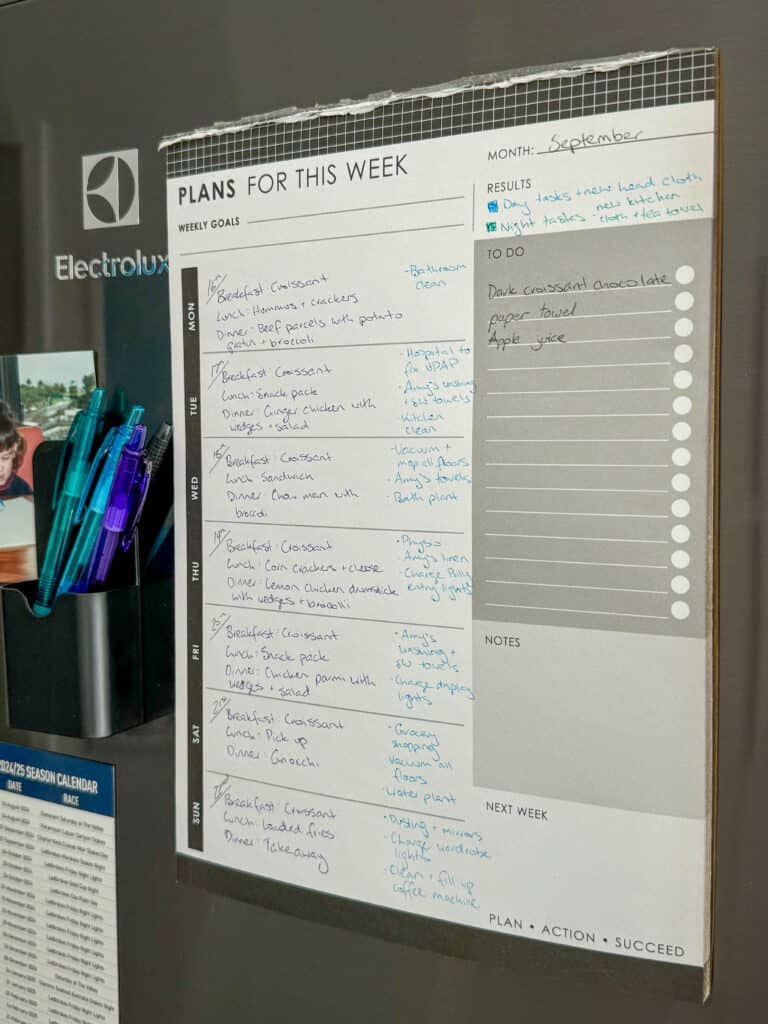 Electrolux
PLANS FOR THIS WEEK
WEEKLY GOALS
MONTH: September
RESULTS
Day tasks + new hand cloth
Night tasks - new kitchen
cloth + tea towel
MON
16th
Breakfast Croissant
Lunch: Hommus + crackers
Dinner: Beef parcels with potato
gratin + broccoli
- Bathroom
clean
TUE
17th
Breakfast: Croissant
Lunch: Snack pack
Dinner: Ginger chicken with
wedges + salad
- Hospital to
fix
- Amy's washing
+ towels
- Kitchen
clean
WED
18th
Breakfast: Croissant
Lunch: Sandwich
Dinner: Chow mein with
broccoli
- Vacuum +
mop all floors
- Amy's towels
- Bath plant
THU
19th
Breakfast: Croissant
Lunch: Corn crackers + cheese
Dinner: Lemon chicken drumstick
with wedges + broccolli
- Physio
- Amy's linen
- Charge
entry lights
FRI
Breakfast: Croissant
Lunch: Snack pack
Dinner: Chicken parmi with
wedges + salad
- Amy's
washing +
towels
- Charge display
lights
SAT
21st
Breakfast: Croissant
Lunch: Pick up
Dinner: Gnocchi
- Grocery
shopping
Vacuum all
floors
- Water plant
SUN
Breakfast: Croissant
Lunch: Loaded fries
Dinner: Takeaway
- Dusting + mirrors
- Charge wardrobe
lights
- Clean + fill up
coffee machine
TO DO
Dark croissant chocolate
paper towel
Apple juice
NOTES
NEXT WEEK
PLAN • ACTION • SUCCEED
2024/25 SEASON CALENDAR
DATE RACE